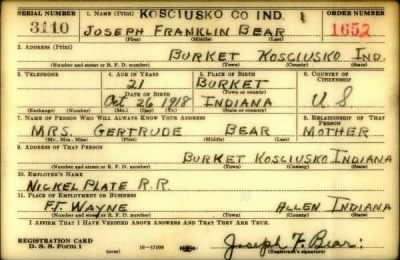 SERIAL NUMBER 1. NAME (Print) KOSCIUSKO CO IND. 1 ORDER NUMBER
3110 JOSEPH FRANKLIN BEAR 1652
2. ADDRESS (Print)
BURKET KOSCIUSKO IND.
(Number and street or R. F. D. number) (Town) (County) (State)
3. TELEPHONE 4. AGE IN YEARS 5. PLACE OF BIRTH 6. COUNTRY OF CITIZENSHIP
21 BURKET
DATE OF BIRTH (Town or county)
Oct 26 1918 INDIANA U.S
(Exchange) (Number) (Mo.) (Day) (Yr.) (State or country)
7. NAME OF PERSON WHO WILL ALWAYS KNOW YOUR ADDRESS 8. RELATIONSHIP OF THAT PERSON
MRS. GERTRUDE BEAR MOTHER
(Mr., Mrs., Miss) (First) (Middle) (Last)
9. ADDRESS OF THAT PERSON
BURKET KOSCIUSKO INDIANA
(Number and street or R. F. D. number) (Town) (County) (State)
10. EMPLOYER'S NAME
NICKEL PLATE R.R.
11. PLACE OF EMPLOYMENT OR BUSINESS
FT. WAYNE ALLEN INDIANA
(Number and street or R. F. D. number) (Town) (County) (State)
I AFFIRM THAT I HAVE VERIFIED ABOVE ANSWERS AND THAT THEY ARE TRUE.
REGISTRATION CARD
D. S. S. FORM 1 (over) 16—17105 Joseph F. Bear
(Registrant's signature)